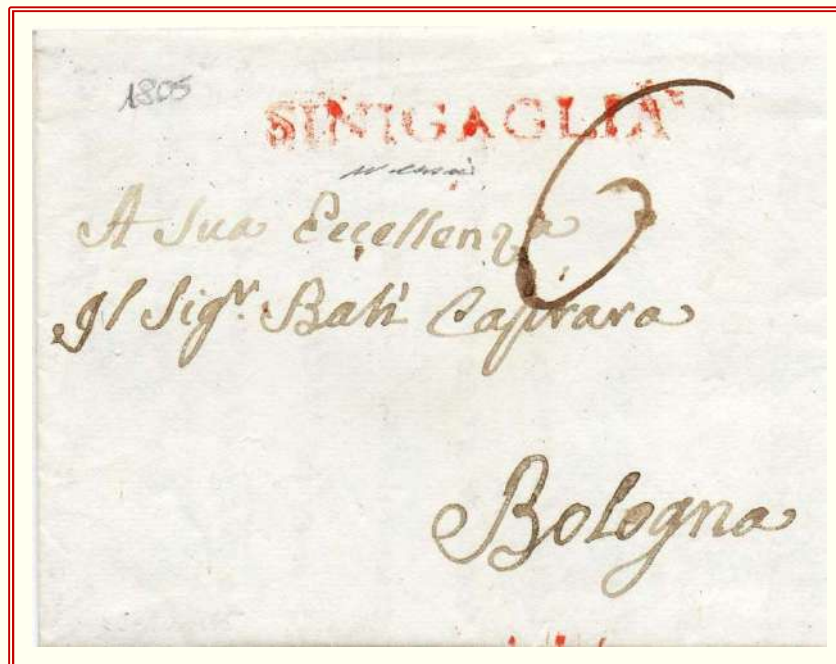 1805
SINIGAGLIA
6
A Sua Eccellenza
Il Sig.r Balì Caprara
Bologna